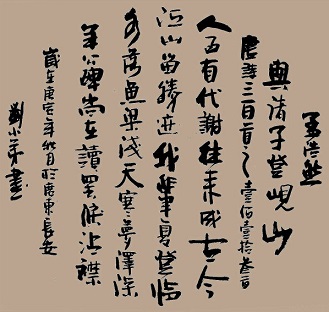 孟浩然
與諸子登峴山
唐詩三百首之壹佰壹拾叁首
人事有代謝往來成古今
江山留勝迹我輩復登臨
水落魚梁淺天寒夢澤深
羊公碑尚在讀罷淚沾襟
歲在庚寅年秋月於廣東長安